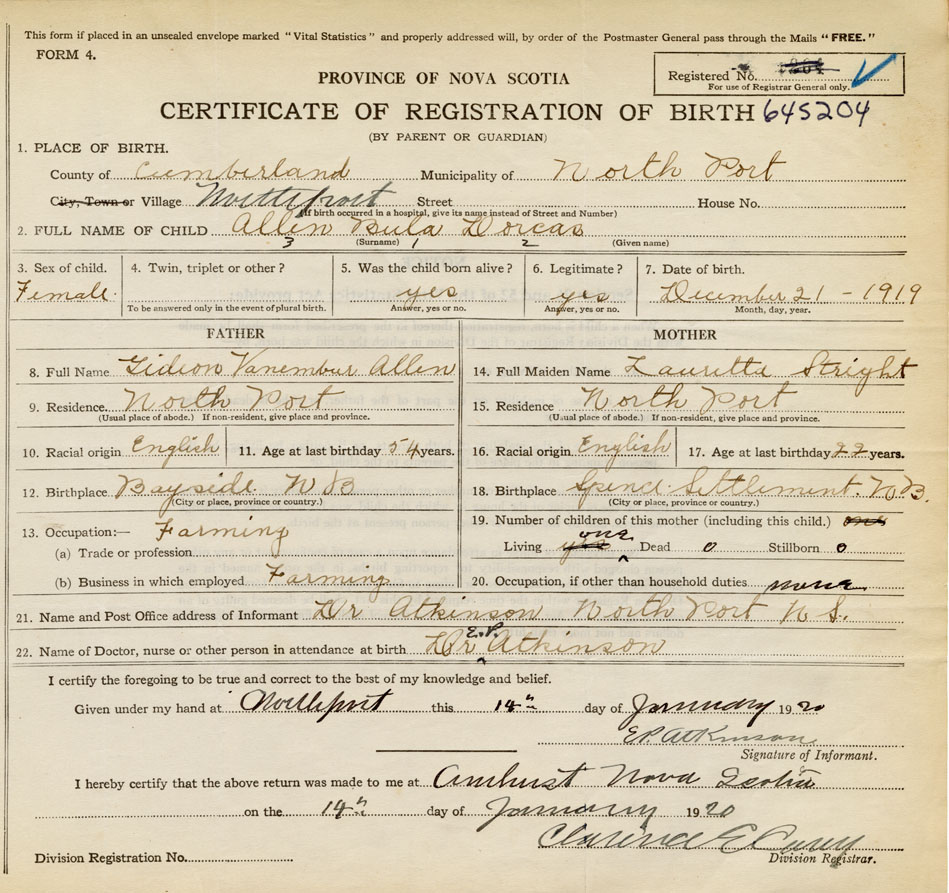 This form if placed in an unsealed envelope marked "Vital Statistics" and properly addressed will, by order of the Postmaster General pass through the Mails "FREE."
FORM 4.
Registered No.
For use of Registrar General only.
PROVINCE OF NOVA SCOTIA
CERTIFICATE OF REGISTRATION OF BIRTH 645204
(BY PARENT OR GUARDIAN)
1. PLACE OF BIRTH.
County of Cumberland Municipality of North Port
City, Town or Village Northport Street House No.
(If birth occurred in a hospital, give its name instead of Street and Number)
2. FULL NAME OF CHILD Allen Bula Dorcas
3 (Surname) 1 2 (Given name)
3. Sex of child. 4. Twin, triplet or other? 5. Was the child born alive? 6. Legitimate? 7. Date of birth.
Female yes yes December 21 - 1919
To be answered only in the event of plural birth. Answer, yes or no. Answer, yes or no. Month, day, year.
FATHER
8. Full Name Gideon Vanembur Allen
9. Residence. North Port
(Usual place of abode.) If non-resident, give place and province.
10. Racial origin English 11. Age at last birthday 54 years.
12. Birthplace Bayside N B
(City or place, province or country.)
13. Occupation:— Farming
(a) Trade or profession
(b) Business in which employed Farming
MOTHER
14. Full Maiden Name Lauretta Stright
15. Residence North Port
(Usual place of abode.) If non-resident, give place and province.
16. Racial origin English 17. Age at last birthday 22 years.
18. Birthplace Spence Settlement. N.B.
(City or place, province or country.)
19. Number of children of this mother (including this child.) one
Living yes one Dead 0 Stillborn 0
20. Occupation, if other than household duties none
21. Name and Post Office address of Informant Dr Atkinson North Port N S.
22. Name of Doctor, nurse or other person in attendance at birth Dr E.P. Atkinson
I certify the foregoing to be true and correct to the best of my knowledge and belief.
Given under my hand at Northport this 14th day of January 1920
E P Atkinson
Signature of Informant.
I hereby certify that the above return was made to me at Amherst Nova Scotia
on the 14th day of January 1920
Clarence E
Division Registration No. Division Registrar.